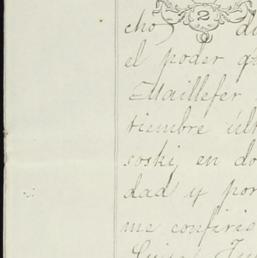 2
cho
el poder q
Maillefer
tiembre últ
soski, en do
dad y por
me confirio